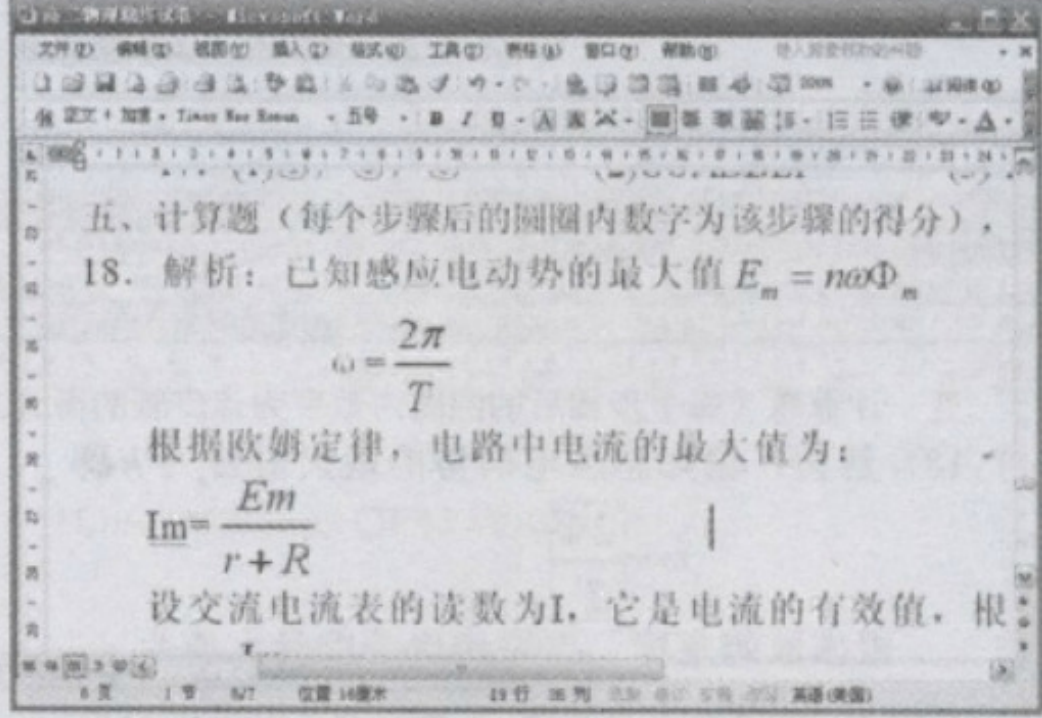 Microsoft Word
文件(F) 编辑(E) 视图(V) 插入(I) 格式(O) 工具(T) 表格(A) 窗口(W) 帮助(H)
200% 阅读(R)
正文 + 加重 Times New Roman 五号 B I U A
五、计算题（每个步骤后的圆圈内数字为该步骤的得分），
18. 解析：已知感应电动势的最大值 E_m = nωΦ_m
ω = 2π/T
根据欧姆定律，电路中电流的最大值为：
Im= Em/(r+R)
设交流电流表的读数为I，它是电流的有效值，根
6 页 1 节 6/7 位置 16厘米 19 行 英语(美国)